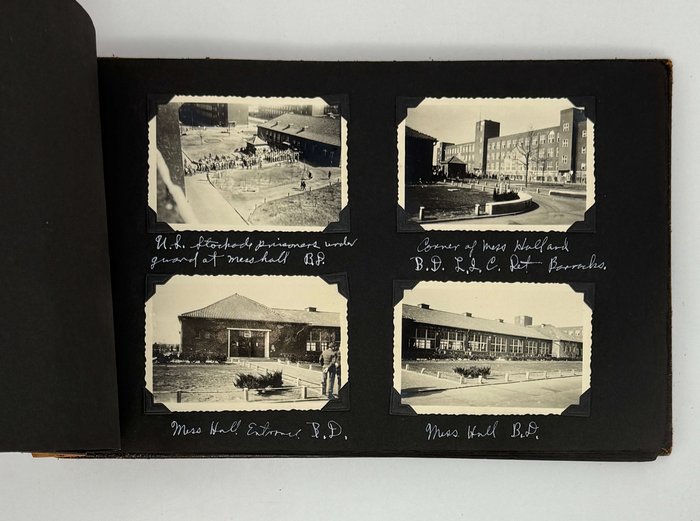 U.S. Stockade prisoners under
guard at mess hall B.D.
Corner of Mess Hall and
B.D. L.I.C. Det Barracks.
Mess Hall Entrance B.D.
Mess Hall B.D.